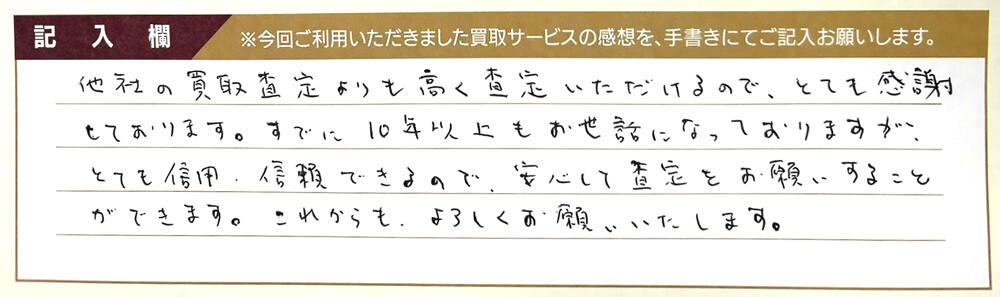 記入欄
※今回ご利用いただきました買取サービスの感想を、手書きにてご記入お願いします。
他社の買取査定よりも高く査定いただけるので、とても感謝
しております。すでに10年以上もお世話になっておりますが、
とても信用、信頼できるので、安心して査定をお願いすること
ができます。これからも、よろしくお願いいたします。